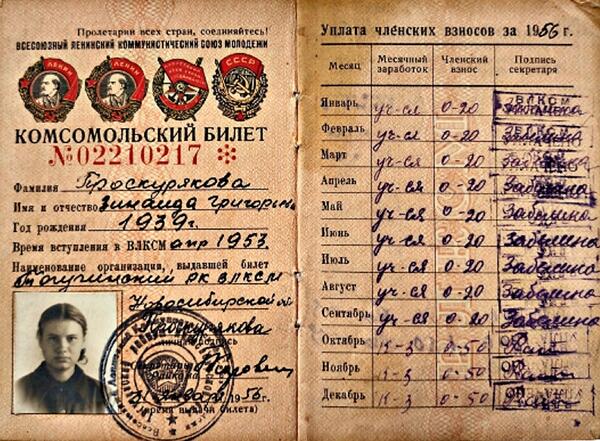 Пролетарии всех стран, соединяйтесь!
ВСЕСОЮЗНЫЙ ЛЕНИНСКИЙ КОММУНИСТИЧЕСКИЙ СОЮЗ МОЛОДЕЖИ
ЛЕНИН ЛЕНИН СССР
КОМСОМОЛЬСКИЙ БИЛЕТ
№02210217
Фамилия Проскурякова
Имя и отчество Зинаида Григорьевна
Год рождения 1939г.
Время вступления в ВЛКСМ апр 1953.
Наименование организации, выдавшей билет
Тогучинский РК ВЛКСМ
Новосибирской обл
Проскурякова
Личная подпись
31 января 1956 г.
(время выдачи билета)
Уплата членских взносов за 1956 г.
Месяц Месячный заработок Членский взнос Подпись секретаря
Январь уч-ся 0-20 ВЛКСМ Забелина
Февраль уч-ся 0-20 ВЛКСМ Забелина
Март уч-ся 0-20 Забелина
Апрель уч-ся 0-20 Забелина
Май уч-ся 0-20 Забелина
Июнь уч-ся 0-20 Забелина
Июль уч-ся 0-20 Забелина
Август уч-ся 0-20 Забелина
Сентябрь уч-ся 0-20 Забелина
Октябрь к-з 0-50
Ноябрь к-з 0-50
Декабрь к-з 0-50